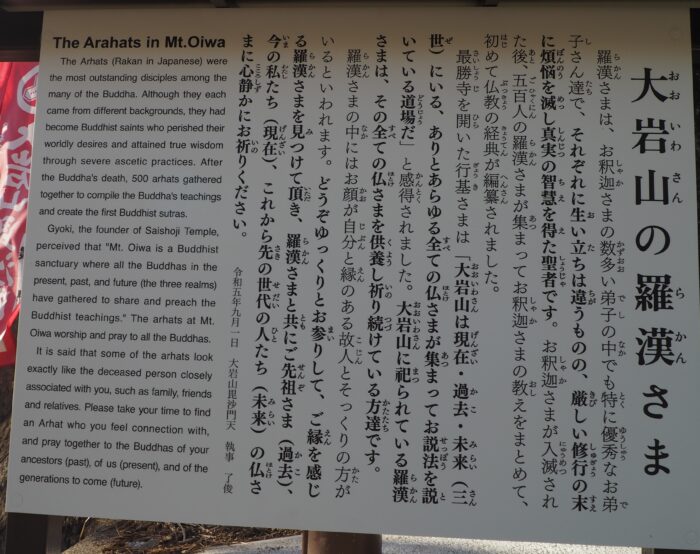 大岩山の羅漢さま
羅漢さまは、お釈迦さまの数多い弟子の中でも特に優秀なお弟
子さん達で、それぞれに生い立ちは違うものの、厳しい修行の末
に煩悩を滅し真実の智慧を得た聖者です。お釈迦さまが入滅され
た後、五百人の羅漢さまが集まってお釈迦さまの教えをまとめて、
初めて仏教の経典が編纂されました。
最勝寺を開いた行基さまは「大岩山は現在・過去・未来（三
世）にいる、ありとあらゆる全ての仏さまが集まってお説法を説
いている道場だ」と感得されました。大岩山に祀られている羅漢
さまは、その全ての仏さまを供養し祈り続けている方達です。
羅漢さまの中にはお顔が自分と縁のある故人とそっくりの方が
いるといわれます。どうぞゆっくりとお参りして、ご縁を感じ
る羅漢さまを見つけて頂き、羅漢さまと共にご先祖さま（過去）、
今の私たち（現在）、これから先の世代の人たち（未来）の仏さ
まに心静かにお祈りください。
令和五年九月一日　大岩山毘沙門天　執事　了俊
The Arahats in Mt.Oiwa
The Arhats (Rakan in Japanese) were
the most outstanding disciples among the
many of the Buddha. Although they each
came from different backgrounds, they had
become Buddhist saints who perished their
worldly desires and attained true wisdom
through severe ascetic practices. After
the Buddha's death, 500 arhats gathered
together to compile the Buddha's teachings
and create the first Buddhist sutras.
Gyoki, the founder of Saishoji Temple,
perceived that "Mt. Oiwa is a Buddhist
sanctuary where all the Buddhas in the
present, past, and future (the three realms)
have gathered to share and preach the
Buddhist teachings." The arhats at Mt.
Oiwa worship and pray to all the Buddhas.
It is said that some of the arhats look
exactly like the deceased person closely
associated with you, such as family, friends
and relatives. Please take your time to find
an Arhat who you feel connection with,
and pray together to the Buddhas of your
ancestors (past), of us (present), and of the
generations to come (future).